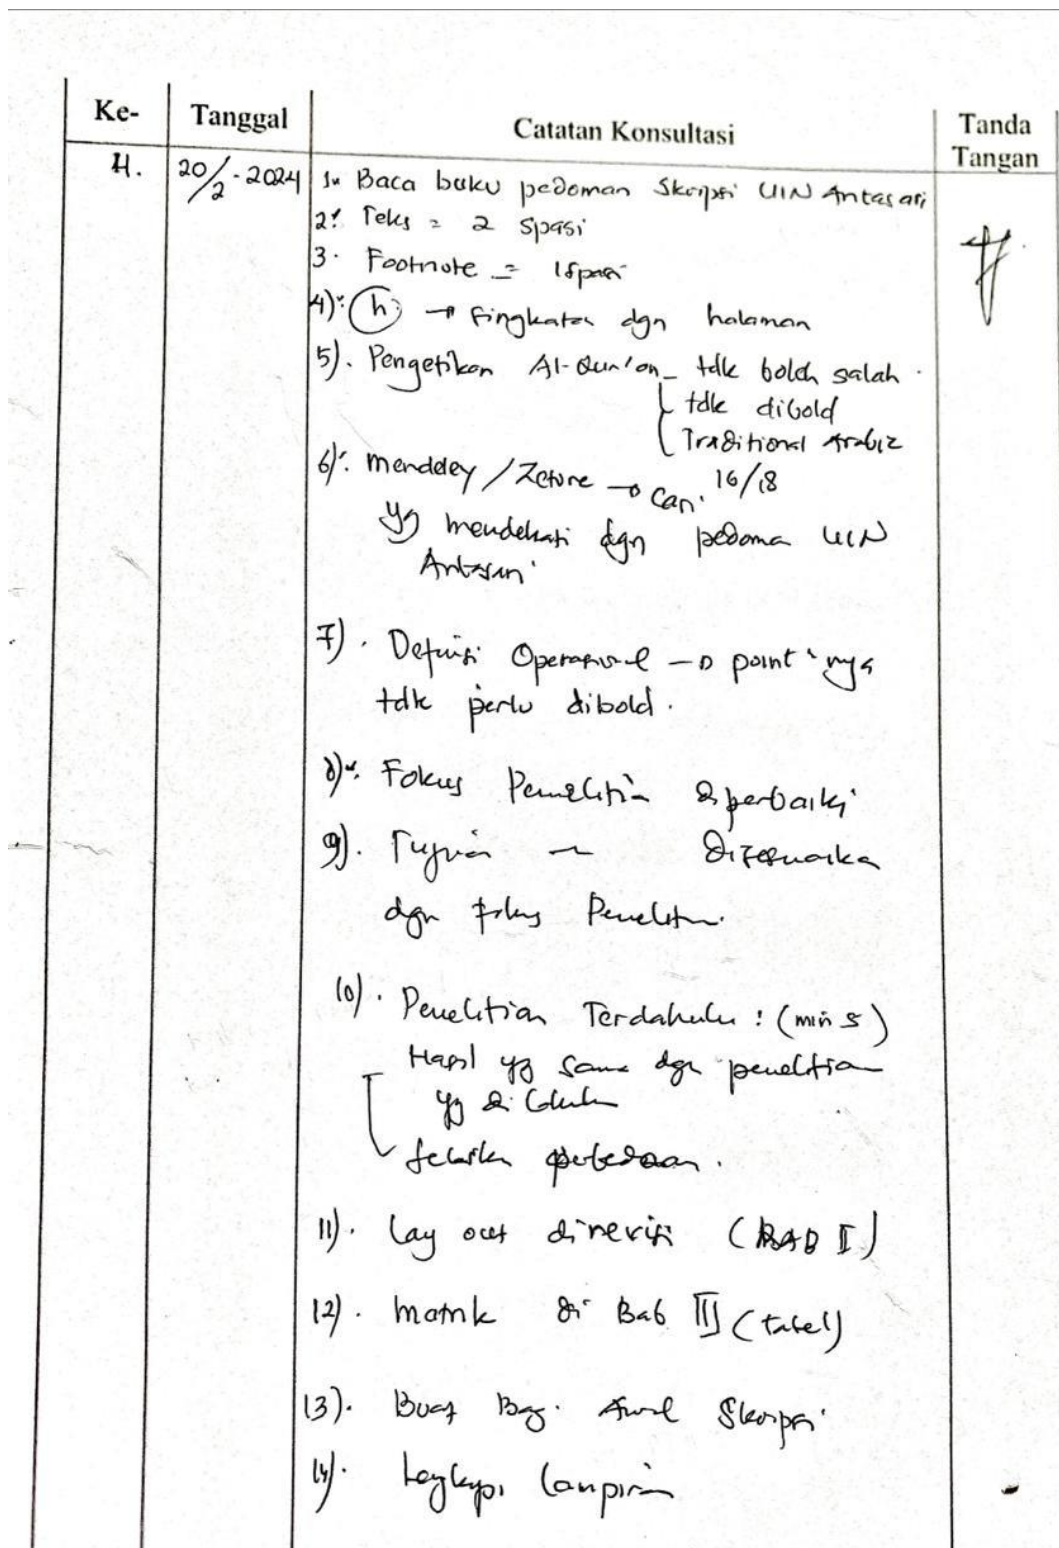 Ke-
Tanggal
Catatan Konsultasi
Tanda
Tangan
4.
20/2-2024
1. Baca buku pedoman Skripsi UIN Antasari
2. Teks = 2 spasi
3. Footnote = 1 spasi
4). h → singkatan dgn halaman
5). Pengetikan Al-Qur'an - tdk boleh salah.
tdk dibold
Traditional Arabic
16/18
6). Mendeley / Zotero → cari
yg mendekati dgn pedoman UIN
Antasari
7). Definisi Operasional → point² nya
tdk perlu dibold.
8). Fokus Penelitian diperbaiki
9). Tujuan disesuaikan
dgn fokus Penelitian.
10). Penelitian Terdahulu : (min 5)
Hasil yg sama dgn penelitian
yg di
perbedaan.
11). Lay out direvisi (BAB I)
12). Matrik di Bab III (tabel)
13). Buat Bag. Awal Skripsi
14). Lengkapi lampiran